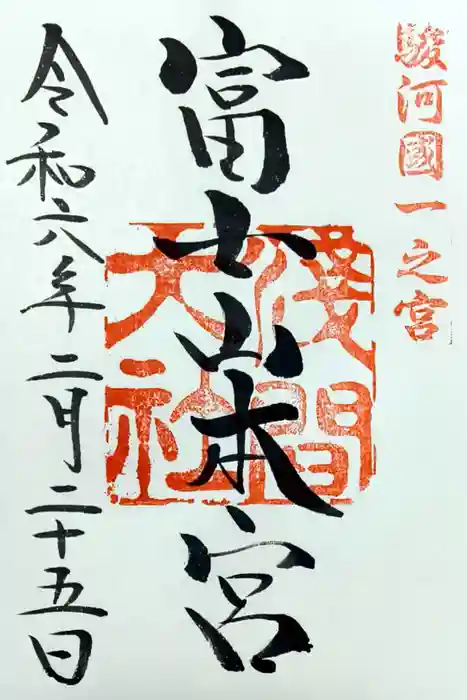 駿河國一之宮
富士山本宮
淺間
大社
令和六年二月二十五日